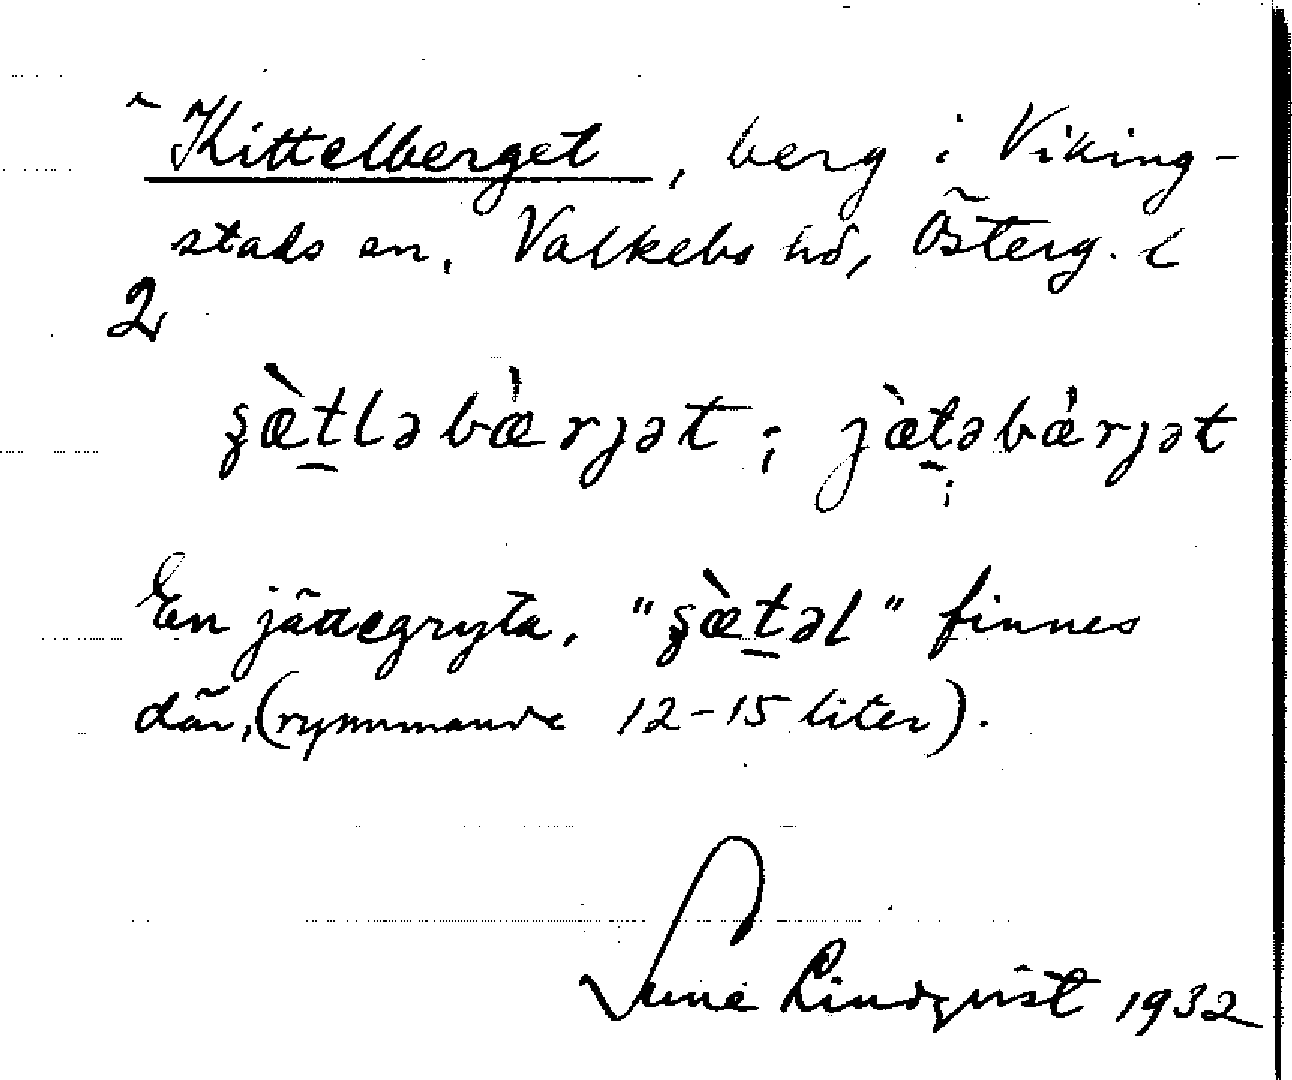 ~ Kittelberget, berg i Viking-
stads sn, Valkebo hd, Österg. l
2
ʂæ̀t̠ləbæ̀rjət; jæ̀t̠əbæ̀rjət
En jättegryta, "ʂæ̀t̠əl" finnes
där, (rymmande 12-15 liter).
Sune Lindqvist 1932